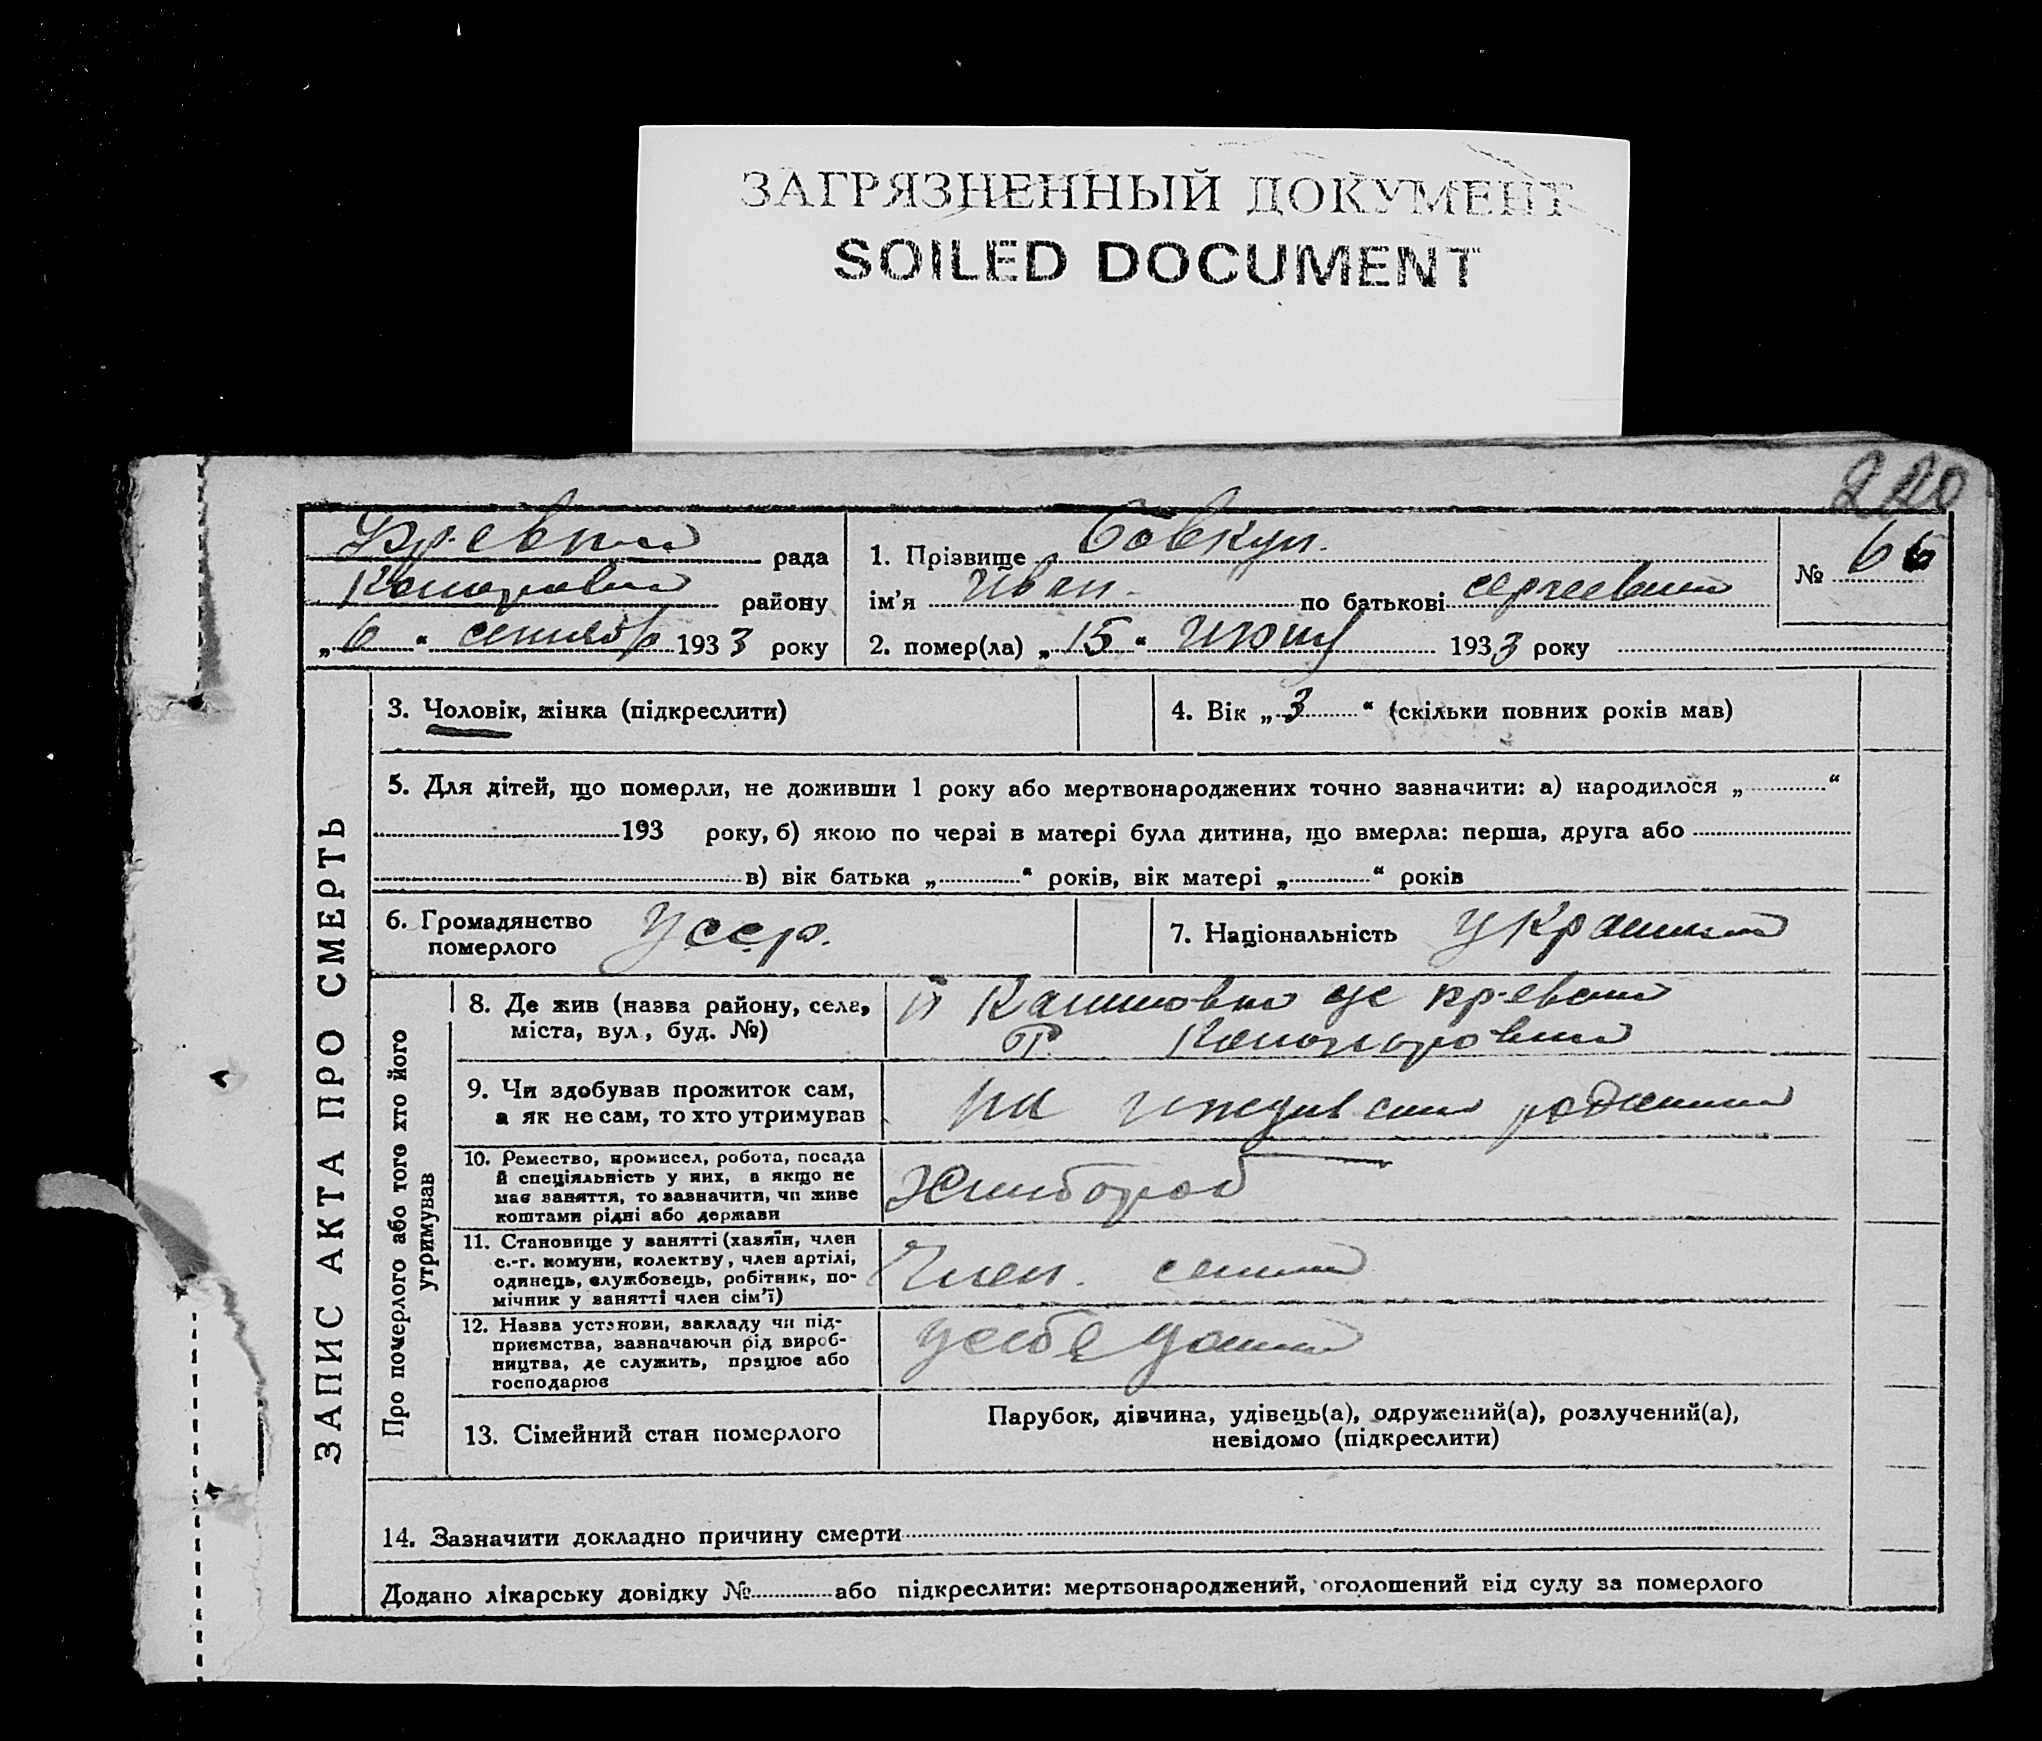 ЗАГРЯЗНЕННЫЙ ДОКУМЕНТ
SOILED DOCUMENT
220
рада
району
„ 6 “ 193 3 року
1. Прізвище Бовкун.
ім'я Иван. по батькові сергеевич
2. помер(ла) „ 15 “ 193 3 року
№ 66
ЗАПИС АКТА ПРО СМЕРТЬ
3. Чоловік, жінка (підкреслити)
4. Вік „ 3 “ (скільки повних років мав)
5. Для дітей, що померли, не доживши 1 року або мертвонароджених точно зазначити: а) народилося „ “
193 року, б) якою по черзі в матері була дитина, що вмерла: перша, друга або
в) вік батька „ “ років, вік матері „ “ років
6. Громадянство
померлого
Усср.
7. Національність
Про померлого або того хто його
утримував
8. Де жив (назва району, села,
міста, вул., буд. №)
9. Чи здобував прожиток сам,
а як не сам, то хто утримував
на
10. Ремество, промисел, робота, посада
й спеціяльність у них, а якщо не
має заняття, то зазначити, чи живе
коштами рідні або держави
Хлибороб
11. Становище у занятті (хазяїн, член
с.-г. комуни, колективу, член артілі,
одинець, службовець, робітник, по-
мічник у занятті член сім'ї)
Член.
12. Назва установи, закладу чи під-
приємства, зазначаючи рід вироб-
ництва, де служить, працює або
господарює
13. Сімейний стан померлого
Парубок, дівчина, удівець(а), одружений(а), розлучений(а),
невідомо (підкреслити)
14. Зазначити докладно причину смерти
Додано лікарську довідку № або підкреслити: мертвонароджений, оголошений від суду за померлого